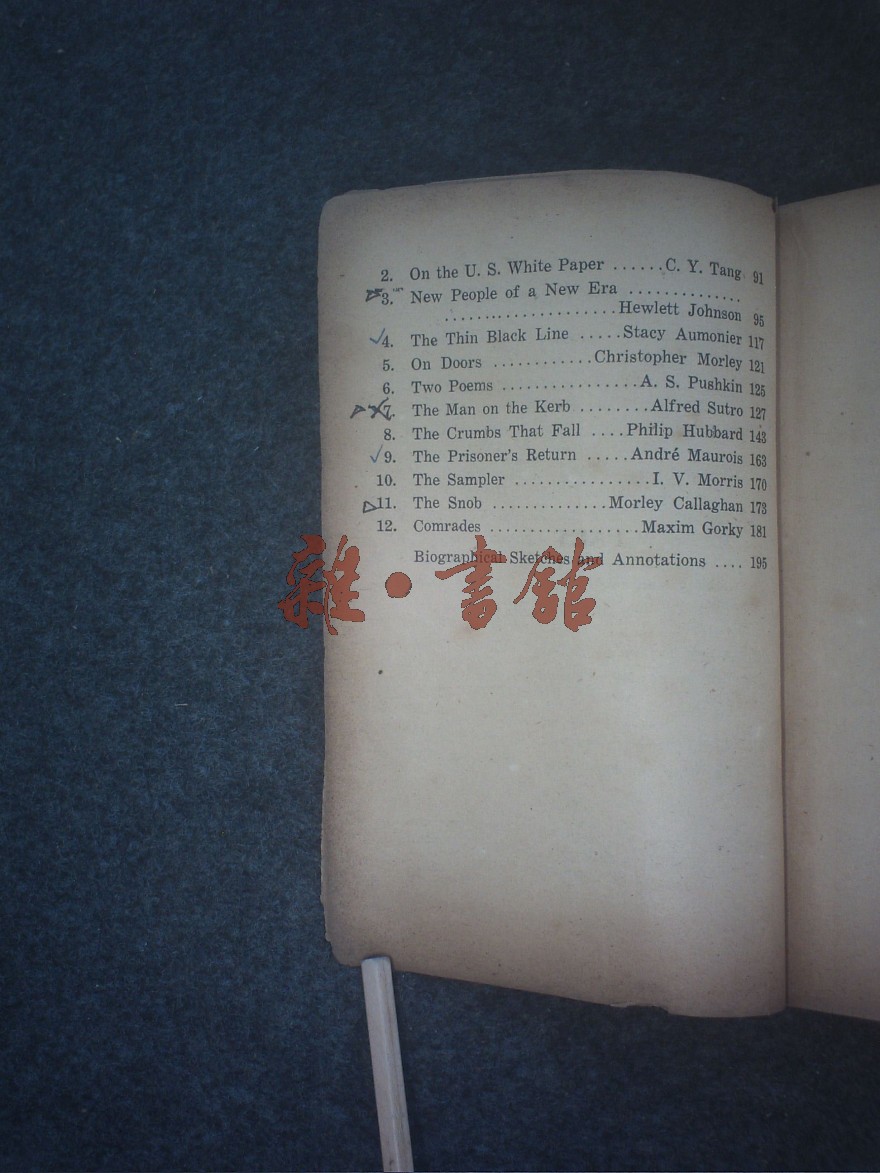 2. On the U. S. White Paper ......C. Y. Tang 91
3. New People of a New Era ..............
.......................Hewlett Johnson 95
4. The Thin Black Line .....Stacy Aumonier 117
5. On Doors ............Christopher Morley 121
6. Two Poems .................A. S. Pushkin 125
7. The Man on the Kerb ........Alfred Sutro 127
8. The Crumbs That Fall ....Philip Hubbard 143
9. The Prisoner's Return .....André Maurois 163
10. The Sampler ................I. V. Morris 170
11. The Snob .............Morley Callaghan 173
12. Comrades ..................Maxim Gorky 181
Biographical Sketches and Annotations .... 195
雜•書舘